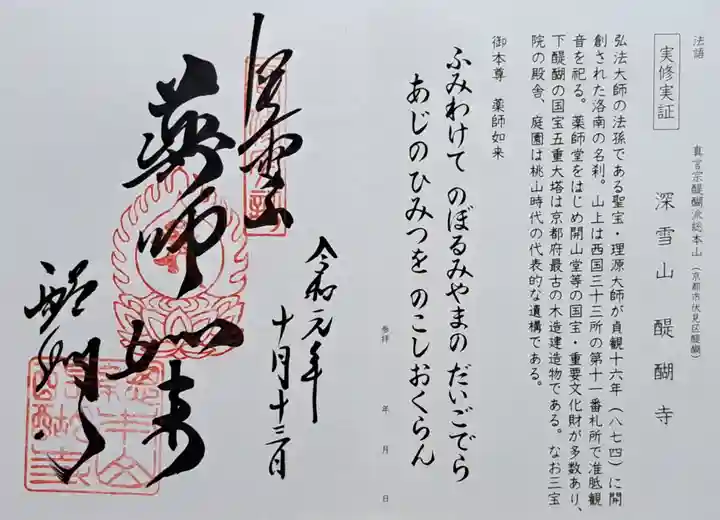 法語
実修実証
真言宗醍醐派総本山（京都市伏見区醍醐）
深雪山　醍醐寺
弘法大師の法孫である聖宝・理源大師が貞観十六年（八七四）に開
創された洛南の名刹。山上は西国三十三所の第十一番札所で准胝観
音を祀る。薬師堂をはじめ開山堂等の国宝・重要文化財が多数あり、
下醍醐の国宝五重大塔は京都府最古の木造建造物である。なお三宝
院の殿舎、庭園は桃山時代の代表的な遺構である。
御本尊　薬師如来
ふみわけて のぼるみやまの だいごでら
あじのひみつを のこしおくらん
参拝　年　月　日
令和元年
十月十三日
深雪山
薬師如来
醍醐寺